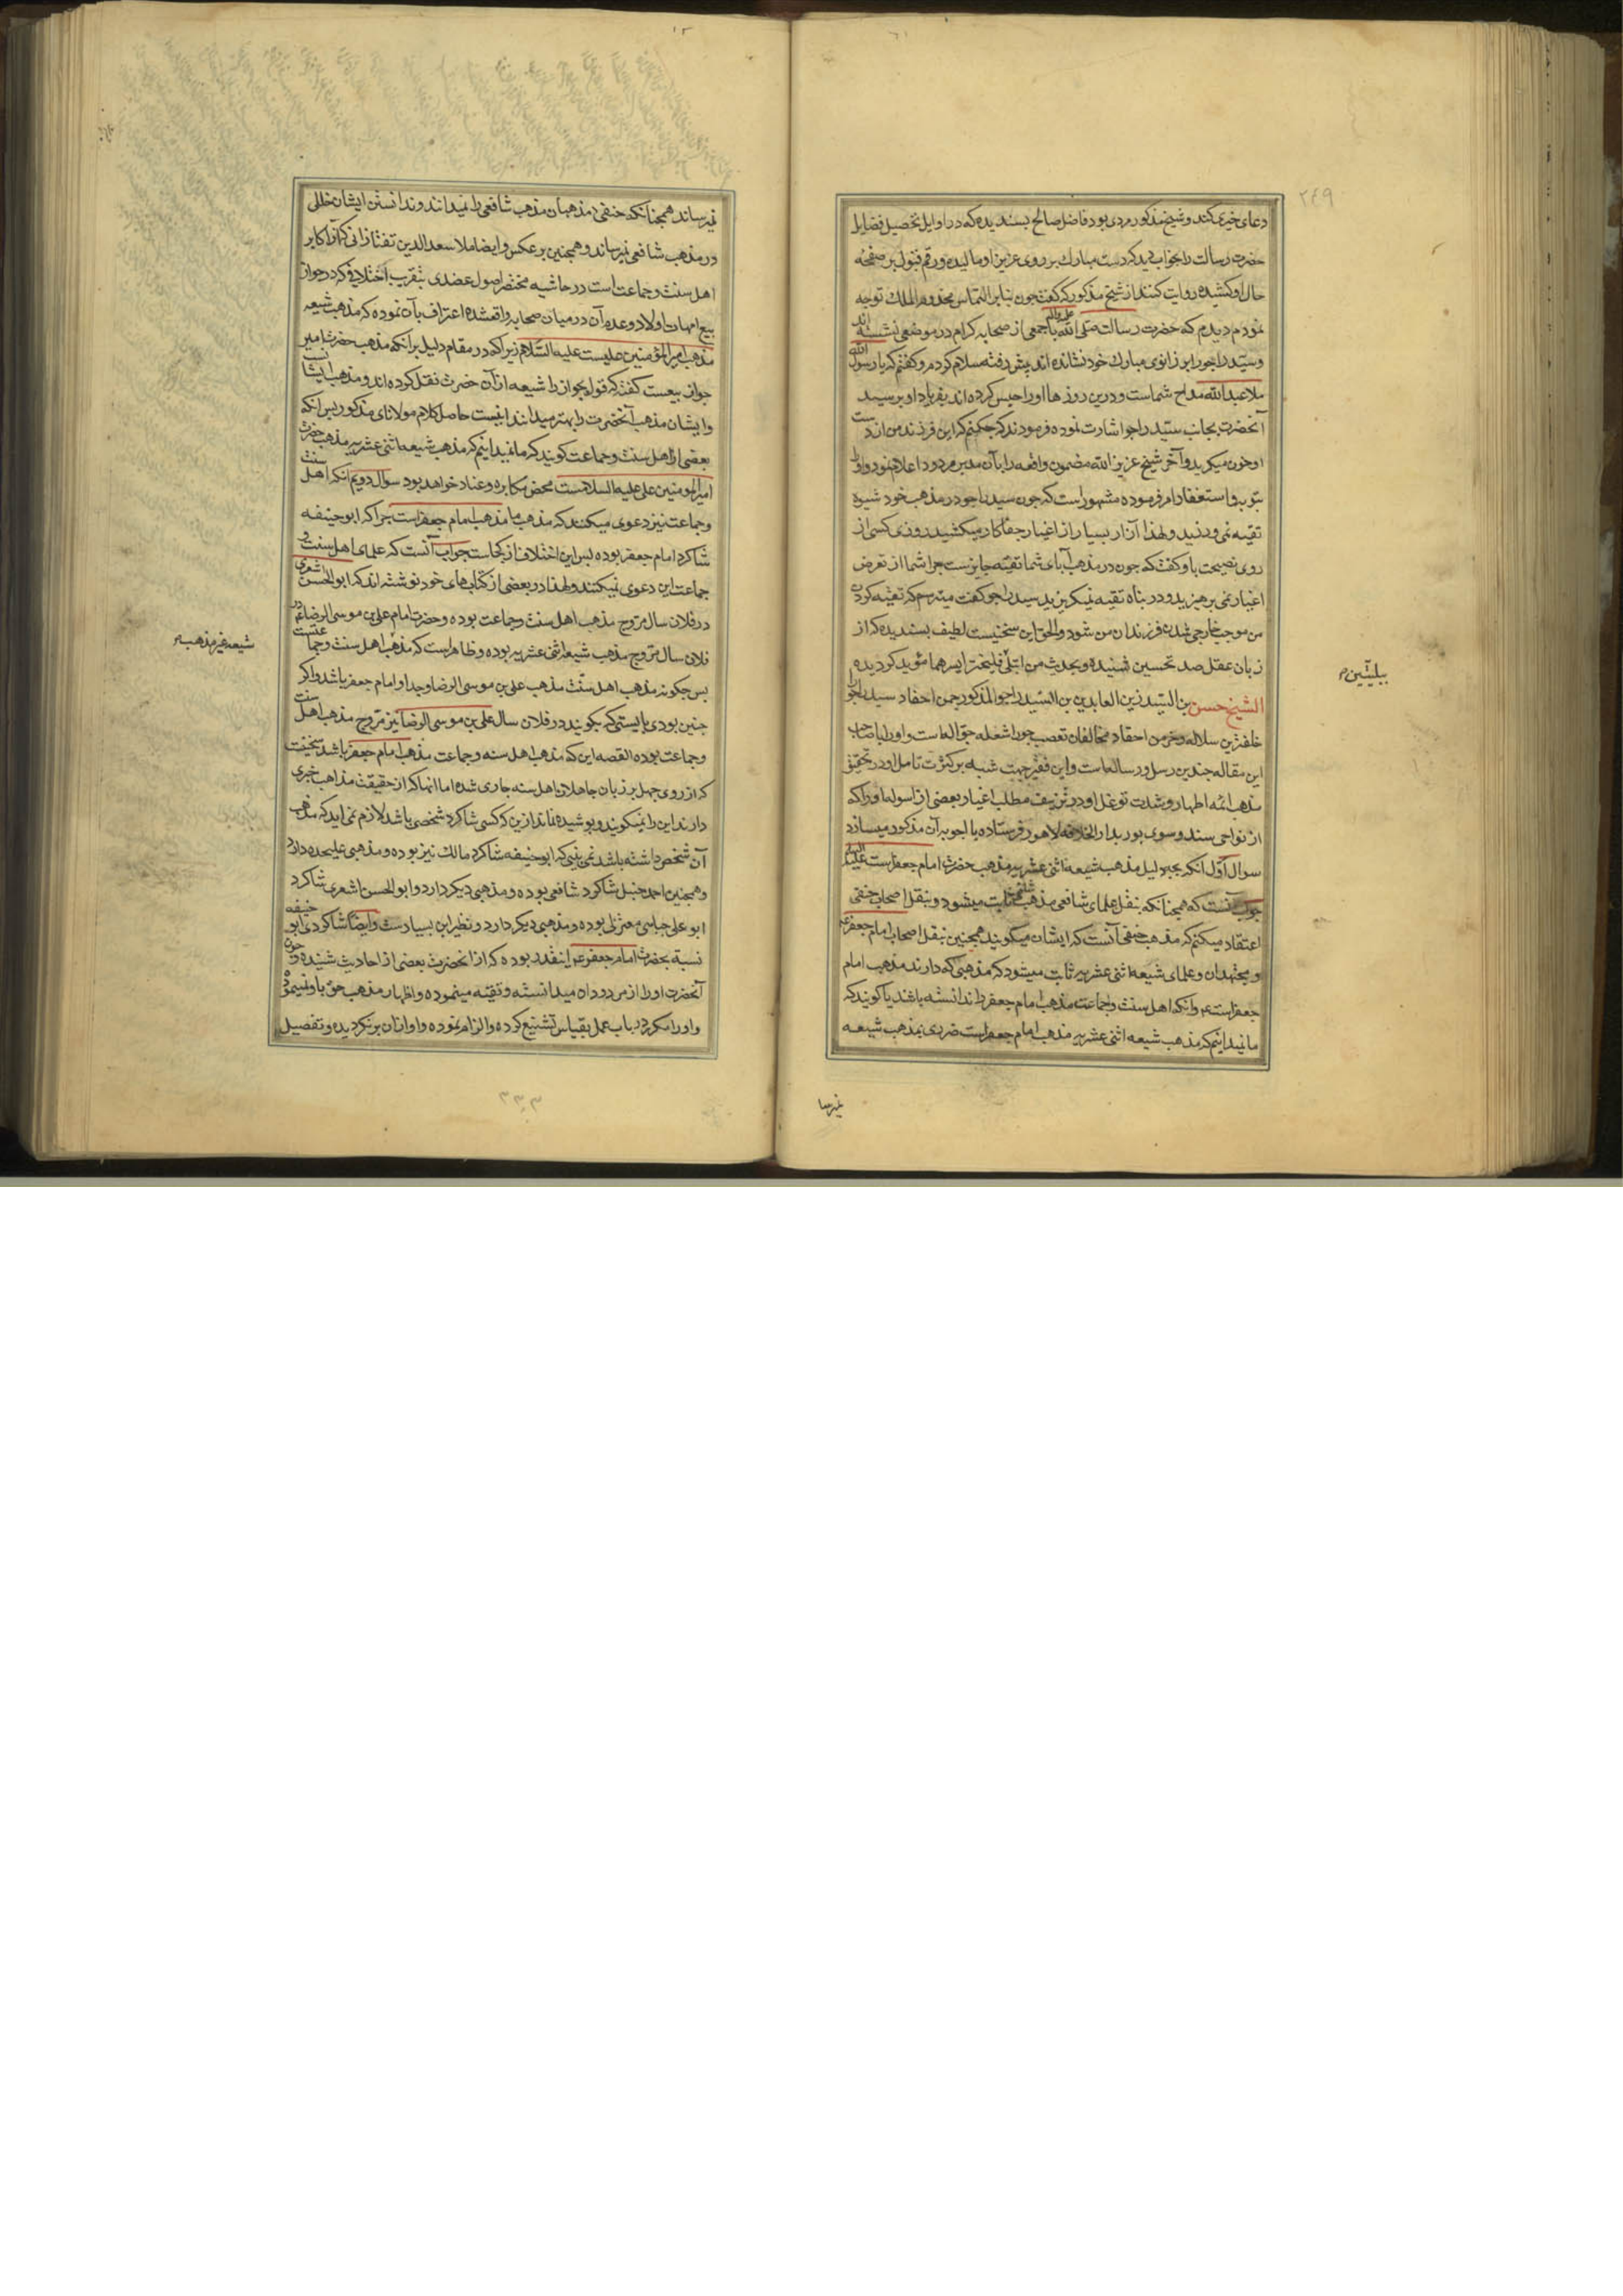 ٢٤٩
دعای خیر میکنند و شیخ مذکور مردی بود فاضل صالح پسندیده که در اوایل تحصیل فضایل
حضرت رسالت را بخواب دید که دست مبارک بر روی عزیز او مالیده و رقم قبول بر صفحه
حال او کشیده روایت کنند از شیخ مذکور که گفت چون بنابر التماس مخدوم الملک توجه
نمودم دیدم که حضرت رسالت صلی الله علیه وآله با جمعی از صحابه کرام در موضعی نشسته اند
و سید راجو را بر زانوی مبارک خود نشانده اند پیش رفته سلام کردم و گفتم که یا رسول الله
ملا عبدالله مداح شماست و درین روزها او را حبس کرده اند بفریاد او برسید
آنحضرت بجانب سید راجو اشارت نموده فرمودند که چکنم که این فرزند من از دست
او خون میگرید و آخر شیخ عزیز الله مضمون واقعه را بآن مدبر مردود اعلام نمود و او را
بتوبه و استغفار امر فرموده مشهور است که چون سید راجو در مذهب خود شیوه
تقیه نمی ورزید و لهذا آزار بسیار از اغیار جفا کار میکشید روزی کسی از
روی نصیحت باو گفت که چون در مذهب آبای شما تقیه جایز است چرا شما از تعرض
اغیار نمی پرهیزید و در پناه تقیه نمیگریزید سید راجو گفت میترسم که تقیه کردن
من موجب خارجی شدن فرزندان من شود والحق این سخنیست لطیف پسندیده که از
زبان عقل صد تحسین شنیده و بحدیث من ابتلی فلیختر ایسرهما مؤید گردیده
الشیخ حسن بن السید زین العابدین بن السید راجو المذکور چمن احفاد سید راجو را
خلفترین سلاله و خرمن احقاد مخالفان تعصب جو را شعله جواله است و او را با صاحب
این مقاله چندین رسل و رساله است و این فقیر جهت شبه بر کثرت تامل او در تحقیق
مذهب ائمه اطهار و شدت توغل او در تزییف مطلب اغیار بعضی از اسوله او را که
از نواحی سند و سوی پور بدار الخلافه لاهور فرستاده با اجوبه آن مذکور میسازد
سوال اول آنکه بچه دلیل مذهب شیعه اثنی عشریه مذهب حضرت امام جعفر است علیه السلام
جواب آنست که همچنانکه بنقل علمای شافعی مذهب شافعی ثابت میشود و بنقل اصحاب حنفی
اعتقاد میکنم که مذهب حنفی آنست که ایشان میگویند همچنین بنقل اصحاب امام جعفر ع
و مجتهدان و علمای شیعه اثنی عشریه ثابت میشود که مذهبی که دارند مذهب امام
جعفر است ع و آنکه اهل سنت و جماعت مذهب امام جعفر را ندانسته باشند یا گویند که
ما نمیدانیم که مذهب شیعه اثنی عشریه مذهب امام جعفر است ضرری بمذهب شیعه
نمیرسا
ببلیتین م
نمیرساند همچنانکه حنفی مذهبان مذهب شافعی را نمیدانند و ندانستن ایشان خللی
در مذهب شافعی نمیرساند و همچنین برعکس و ایضا ملا سعد الدین تفتازانی که از اکابر
اهل سنت و جماعت است در حاشیه مختصر اصول عضدی بتقریب اختلافی که در جواز
بیع امهات اولاد و عدم آن در میان صحابه واقعشده اعتراف بآن نموده که مذهب شیعه
مذهب امیر المؤمنین علیست علیه السلام زیرا که در مقام دلیل بر آنکه مذهب حضرت امیر
جواز بیعست گفته که قول بجواز را شیعه از آن حضرت نقل کرده اند و مذهب ایشانست
و ایشان مذهب آنحضرت را بهتر میدانند اینست حاصل کلام مولانای مذکور پس آنکه
بعضی از اهل سنت و جماعت گویند که ما نمیدانیم که مذهب شیعه اثنی عشریه مذهب حضرت
امیر المومنین علی علیه السلامست محض مکابره و عناد خواهد بود سوال دویم آنکه اهل سنت
و جماعت نیز دعوی میکنند که مذهب ما مذهب امام جعفر است چرا که ابو حنیفه
شاگرد امام جعفر بوده پس این اختلاف از کجاست جواب آنست که علمای اهل سنت و
جماعت این دعوی نمیکنند و لهذا در بعضی از کتابهای خود نوشته اند که ابو الحسن اشعری
در فلان سال مروج مذهب اهل سنت و جماعت بوده و حضرت امام علی بن موسی الرضا ع در
فلان سال مروج مذهب شیعه اثنی عشریه بوده و ظاهر است که مذهب اهل سنت و جماعتست
پس چگونه مذهب اهل سنت مذهب علی بن موسی الرضا و جد او امام جعفر باشد و اگر
چنین بودی بایستی که بگویند در فلان سال علی بن موسی الرضا نیز مروج مذهب اهل سنت
و جماعت بوده القصه این که مذهب اهل سنه و جماعت مذهب امام جعفر باشد سخنیست
که از روی جهل بر زبان جاهلان اهل سنه جاری شده اما آنها که از حقیقت مذاهب خبری
دارند این را نمیگویند و پوشیده نماند ازین که کسی شاگرد شخصی باشد لازم نمی اید که مذهب
آن شخص داشته باشد نمی بینی که ابو حنیفه شاگرد مالک نیز بوده و مذهبی علیحده دارد
و همچنین احمد حنبل شاگرد شافعی بوده و مذهبی دیگر دارد و ابو الحسن اشعری شاگرد
ابو علی جبایی معتزلی بوده و مذهبی دیگر دارد و نظیر این بسیار است و ایضا شاگردی ابو حنیفه
نسبة بحضرت امام جعفر ع اینقدر بوده که از آنحضرت بعضی از احادیث شنیده و چون
آنحضرت او را از مردودان میدانسته و تقیه مینموده و اظهار مذهب حق باو نمینموده
و او را مکرر در باب عمل بقیاس تشنیع کرده و الزام نموده و او از آن برنگردیده و تفصیل
شیعه غیر مذهب
٣٣٣